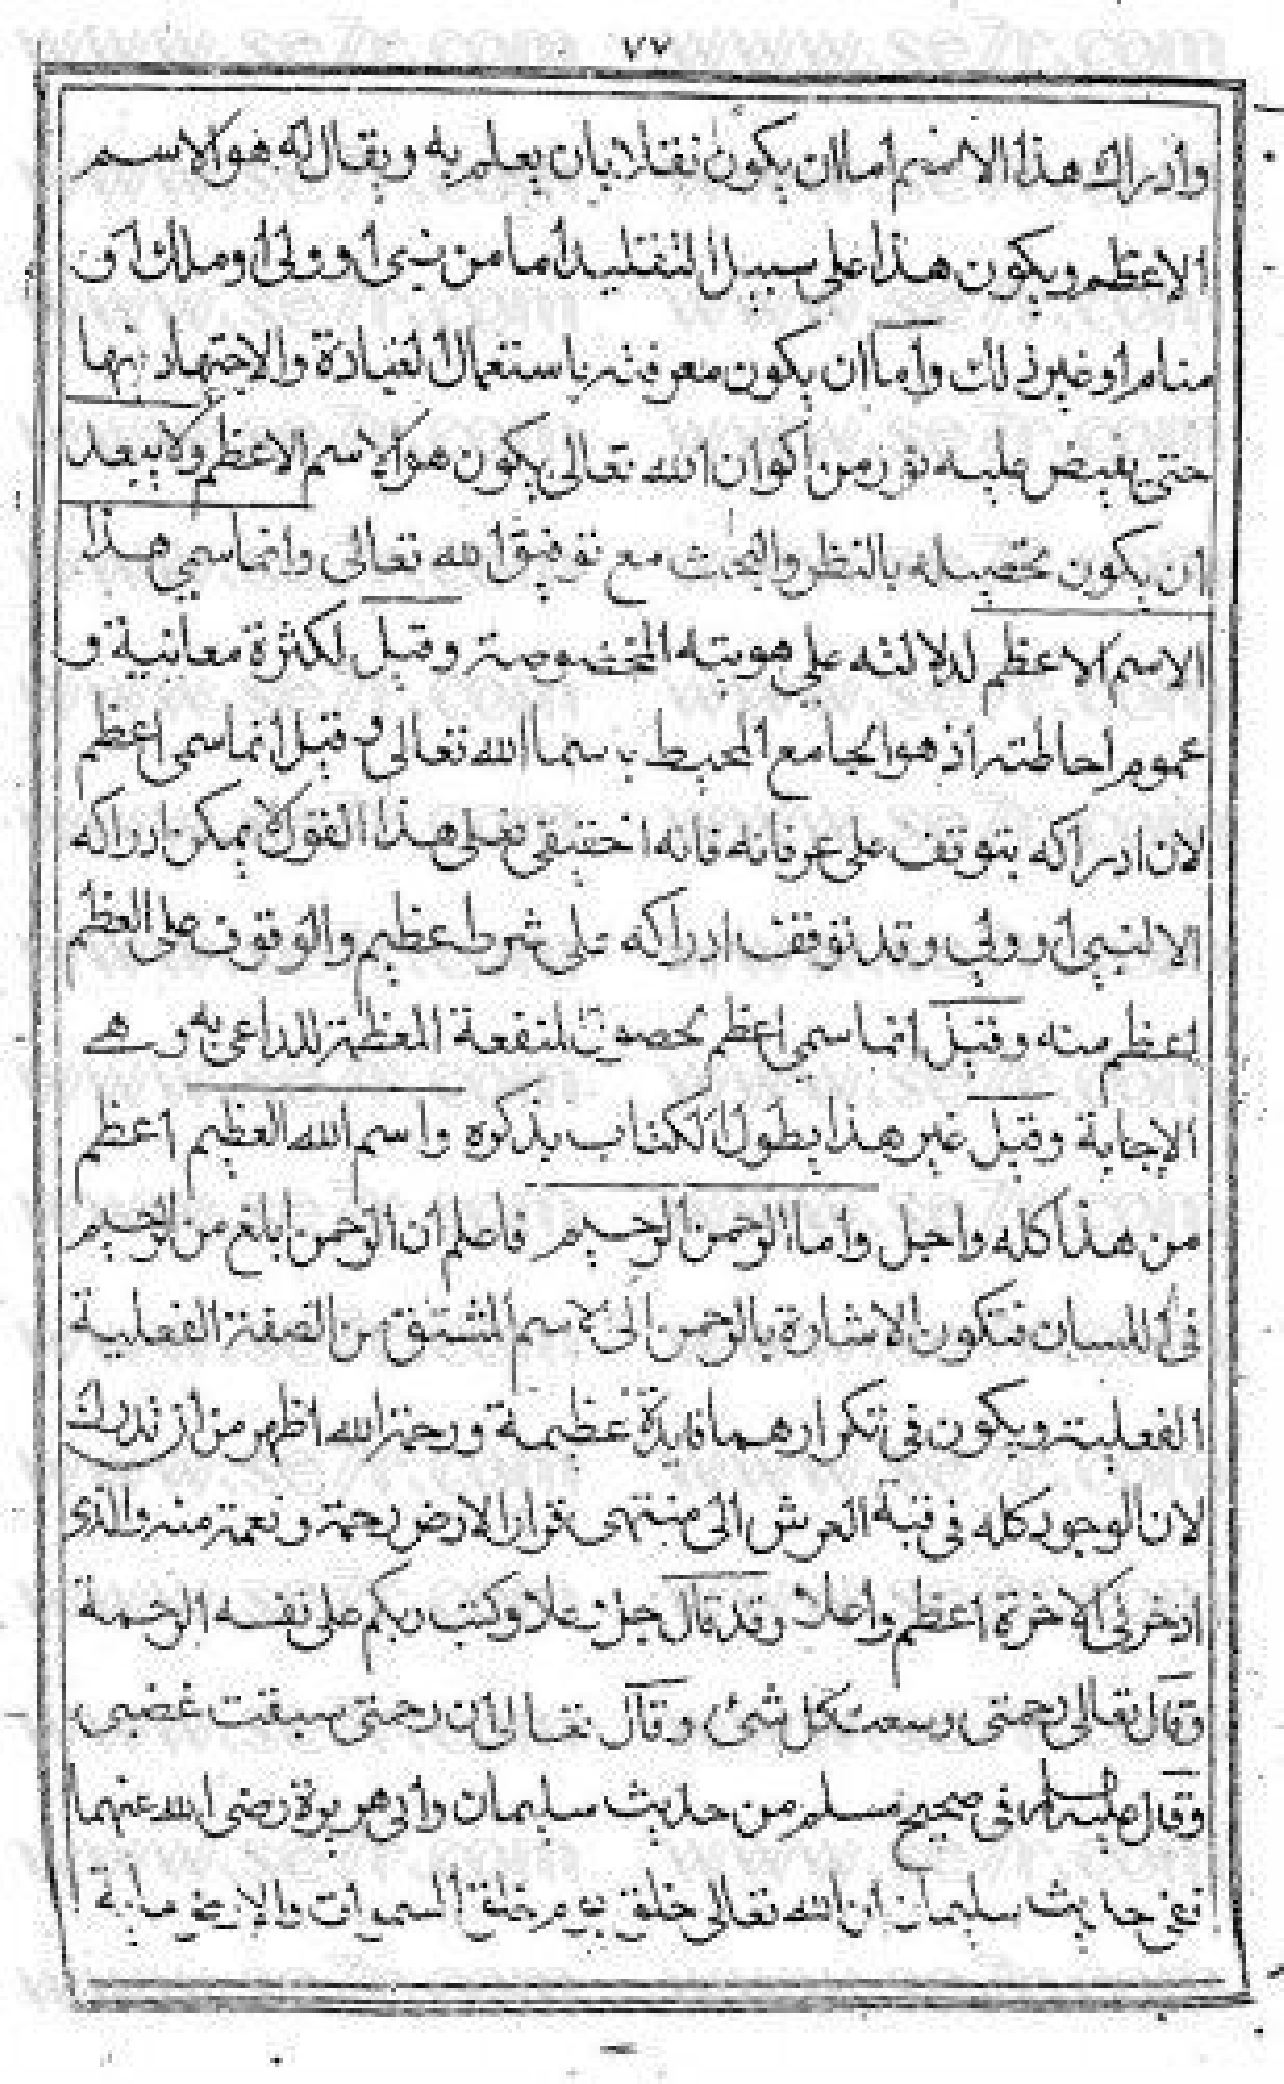 ٧٧
وادراك هذا الاسم اما ان يكون نقلا بان يعلم به ويقال له هو الاسم
الاعظم ويكون هذا على سبيل التقليد اما من نبى أو ولى أو ملك أو
منام او غير ذلك وأما ان يكون معرفته باستعمال العبادة والاجتهاد بها
حتى يفيض عليه نور من اكوان الله تعالى يكون هو الاسم الاعظم ولا يبعد
ان يكون تحصيله بالنظر والبحث مع توفيق الله تعالى وانما سمي هذا
الاسم الاعظم لدلالته على هويته المخصوصة وقيل لكثرة معانية و
عموم احاطته اذ هو الجامع المحيط باسما الله تعالى وقيل انما سمى اعظم
لان ادراكه يتوقف على عرفانه فانه اخقيقى فعلى هذا القول لا يمكن ادراكه
الا لنبي أو ولي وقد توقف ادراكه على شرط عظيم والوقوف على العظم
اعظم منه وقيل انما سمى اعظم لحصول المنفعة العظمة للداعى به وهي
الاجابة وقيل غير هذا يطول الكتاب بذكره واسم الله العظيم اعظم
من هذا كله واجل واما الرحمن الرحيم فاعلم ان الرحمن ابلغ من الرحيم
في اللسان فتكون الاشارة بالرحمن الى الاسم المشتق من الصفة الفعلية
الفعلية ويكون فى تكرارهما فايدة عظيمة ورحمة الله اظهر من ان تدرك
لان الوجود كله فى قبة العرش الى منتهى قرار الارض رحمة ونعمة منه والذى
ادخر فى الاخرة اعظم واعلا وقد قال جل وعلا وكتب ربكم على نفسه الرحمة
وقال تعالى رحمتى وسعت كل شئ وقال تعالى ان رحمتى سبقت غضبى
وقال عليه السلام فى صحيح مسلم من حديث سليمان وأبى هريرة رضى الله عنهما
ففى حديث سليمان ان الله تعالى خلق يوم خلق السموات والارض ماية